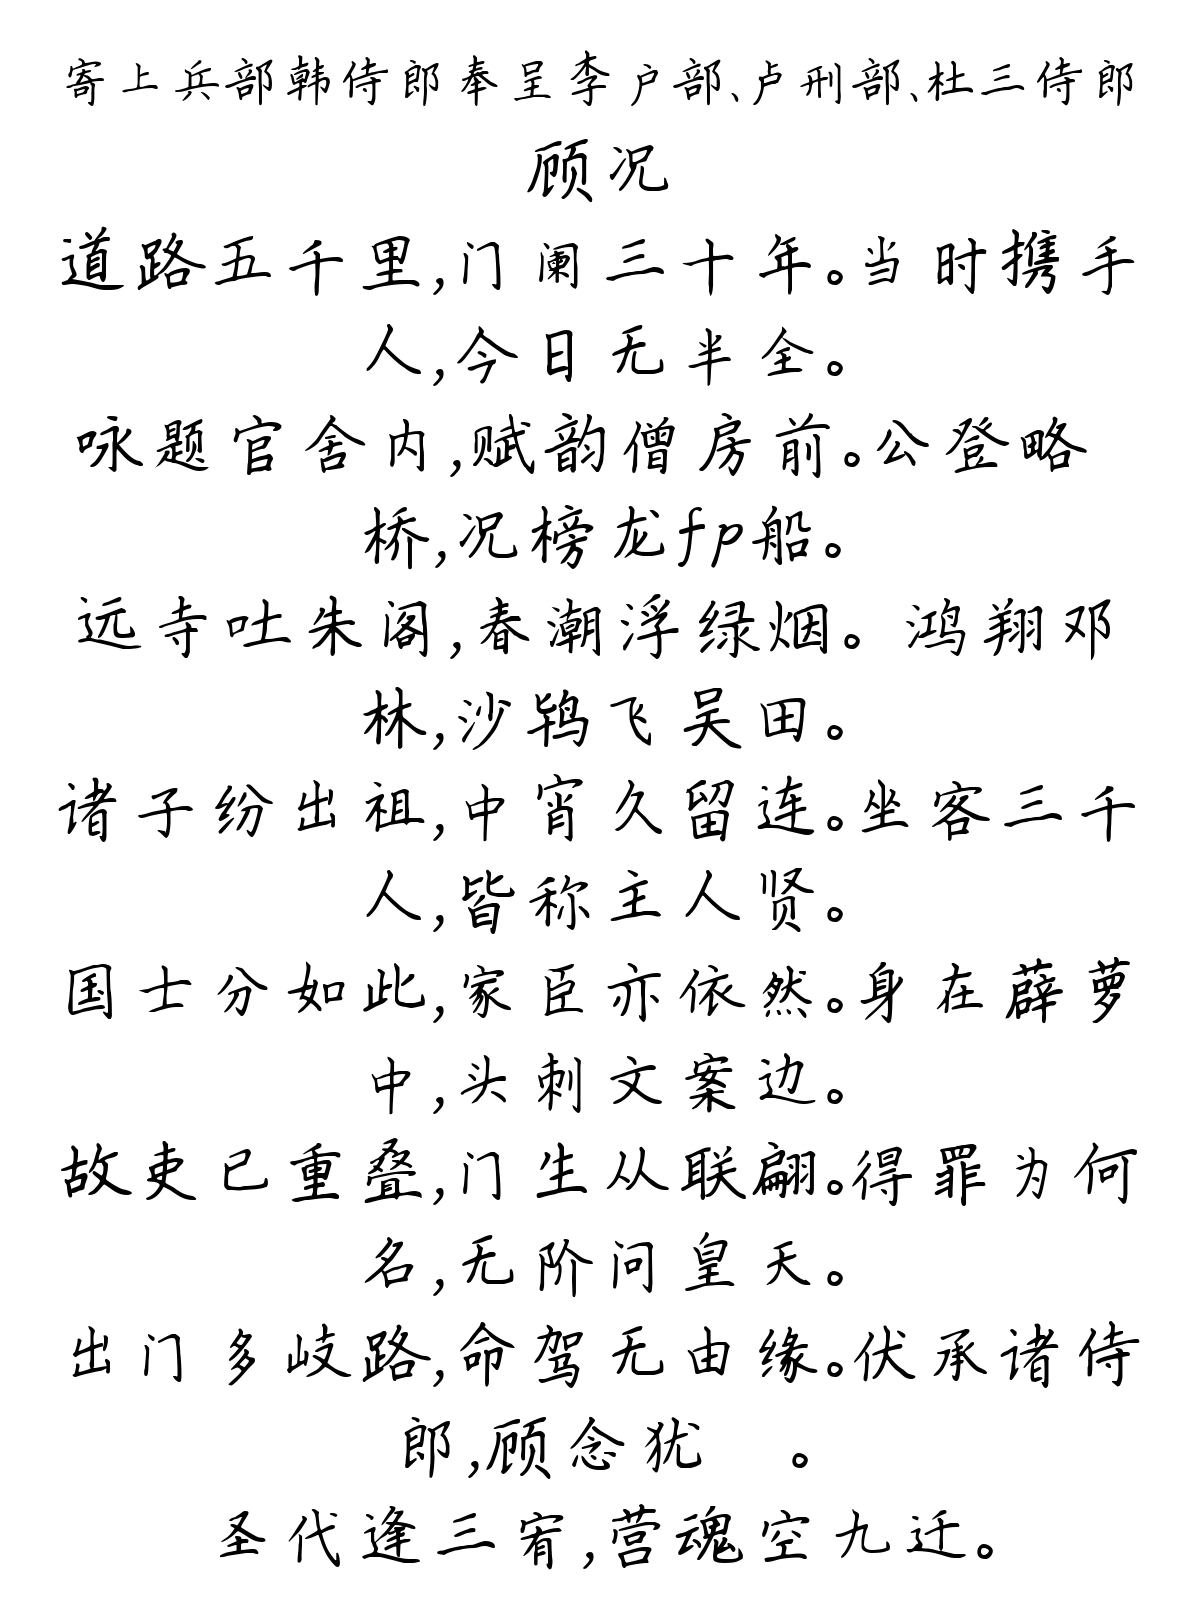 寄上兵部韩侍郎奉呈李户部、卢刑部、杜三侍郎
顾况
道路五千里,门阑三十年。当时携手
人,今日无半全。
咏题官舍内,赋韵僧房前。公登略
桥,况榜龙fp船。
远寺吐朱阁,春潮浮绿烟。 鸿翔邓
林,沙鸨飞吴田。
诸子纷出祖,中宵久留连。坐客三千
人,皆称主人贤。
国士分如此,家臣亦依然。身在薜萝
中,头刺文案边。
故吏已重叠,门生从联翩。得罪为何
名,无阶问皇天。
出门多岐路,命驾无由缘。伏承诸侍
郎,顾念犹 。
圣代逢三宥,营魂空九迁。